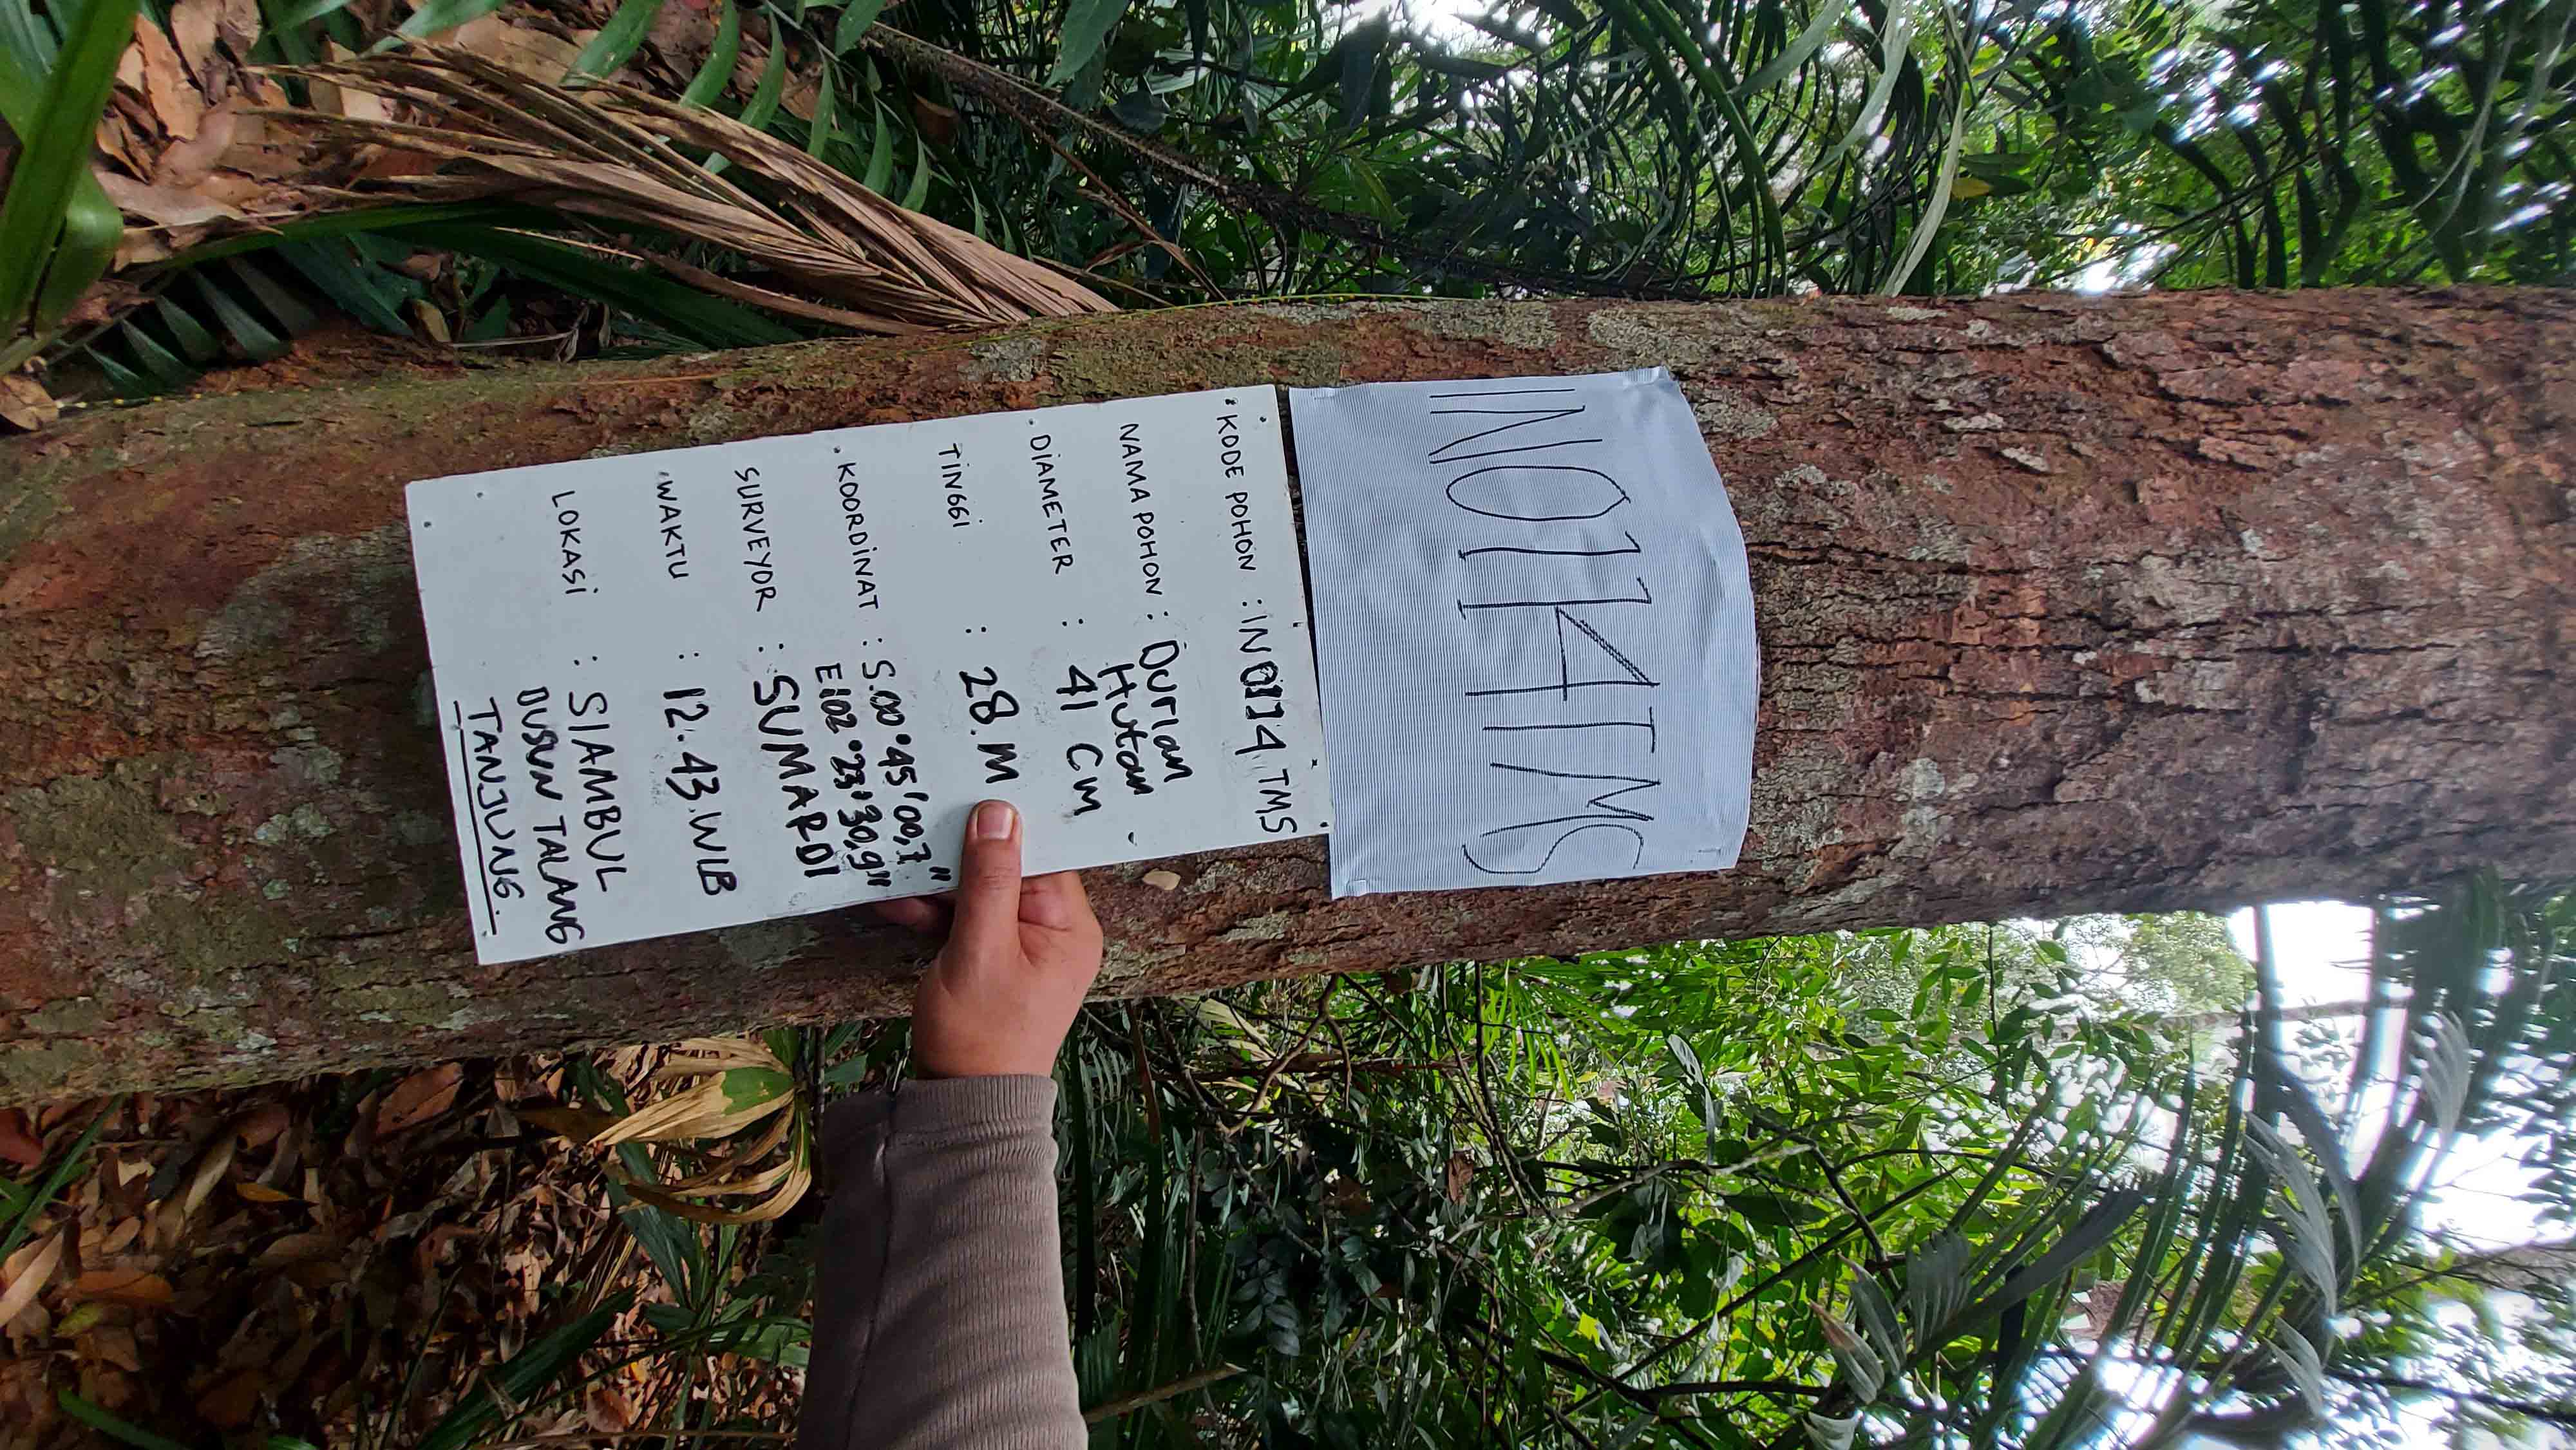 IN0114TMS
KODE POHON : IN 0114 TMS
NAMA POHON : Durian
Hutan
DIAMETER : 41 Cm
TINGGI : 28.M
KOORDINAT : S.00°45'00,7"
E102°23'30,9"
SURVEYOR : SUMARDI
WAKTU : 12.43.WIB
LOKASI : SIAMBUL
DUSUN TALANG
TANJUNG.